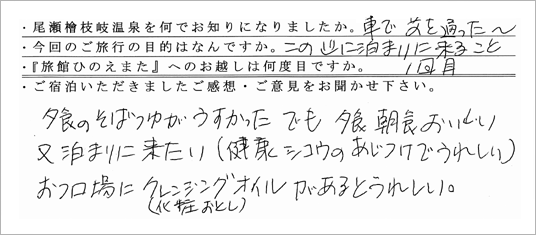 ・尾瀬檜枝岐温泉を何でお知りになりましたか。車で前を通った〜
・今回のご旅行の目的はなんですか。この辺に泊まりに来ること
・『旅館ひのえまた』へのお越しは何度目ですか。 1回目
・ご宿泊いただきましたご感想・ご意見をお聞かせ下さい。
夕食のそばつゆがうすかった でも 夕食 朝食 おいしい
又泊まりに来たい(健康シコウのあじつけでうれしい)
おフロ場に クレンジングオイル があるとうれしい。
(化粧おとし)